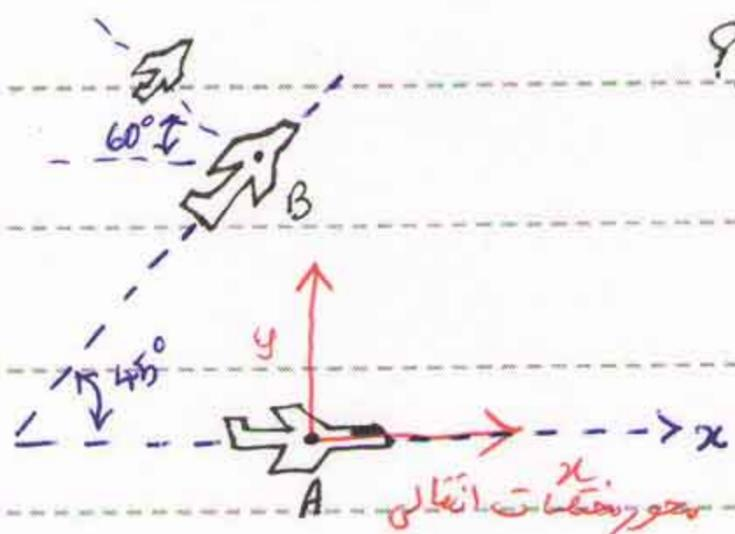 ؟
60°
B
y
45°
x
A
x
محور مختصات انتقالی